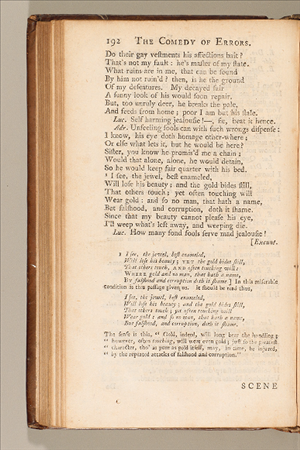 192 THE COMEDY OF ERRORS.
Do their gay vestments his affections bait?
That's not my fault: he's master of my state.
What ruins are in me, that can be found
By him not ruin'd? then, is he the ground
Of my defeatures. My decayed fair
A sunny look of his would soon repair.
But, too unruly deer, he breaks the pale,
And feeds from home; poor I am but his stale.
Luc. Self harming jealousie!—, fie, beat it hence.
Adr. Unfeeling fools can with such wrongs dispense:
I know, his eye doth homage other-where;
Or else what lets it, but he would be here?
Sister, you know he promis'd me a chain;
Would that alone, alone, he would detain,
So he would keep fair quarter with his bed.
1 I see, the jewel, best enameled,
Will lose his beauty; and the gold bides still,
That others touch; yet often touching will
Wear gold: and so no man, that hath a name,
But falshood, and corruption, doth it shame.
Since that my beauty cannot please his eye,
I'll weep what's left away, and weeping die.
Luc. How many fond fools serve mad jealousie!
[Exeunt.
1 I see, the jewel, best enameled,
Will lose his beauty; YET the gold bides still,
That others touch, AND often touching will:
WHERE gold and no man, that hath a name,
By falshood and corruption doth it shame] In this miserable
condition is this passage given us. It should be read thus,
I see, the jewel, best enameled,
Will lose his beauty; and the gold bides still,
That others touch; yet often touching will
Wear gold: and so no man, that hath a name,
But falshood, and corruption, doth it shame.
The sense is this, " Gold, indeed, will long bear the handling;
" however, often touching, will wear even gold; just so the greatest
" character, tho' as pure as gold itself, may, in time, be injured,
" by the repeated attacks of falshood and corruption."
SCENE